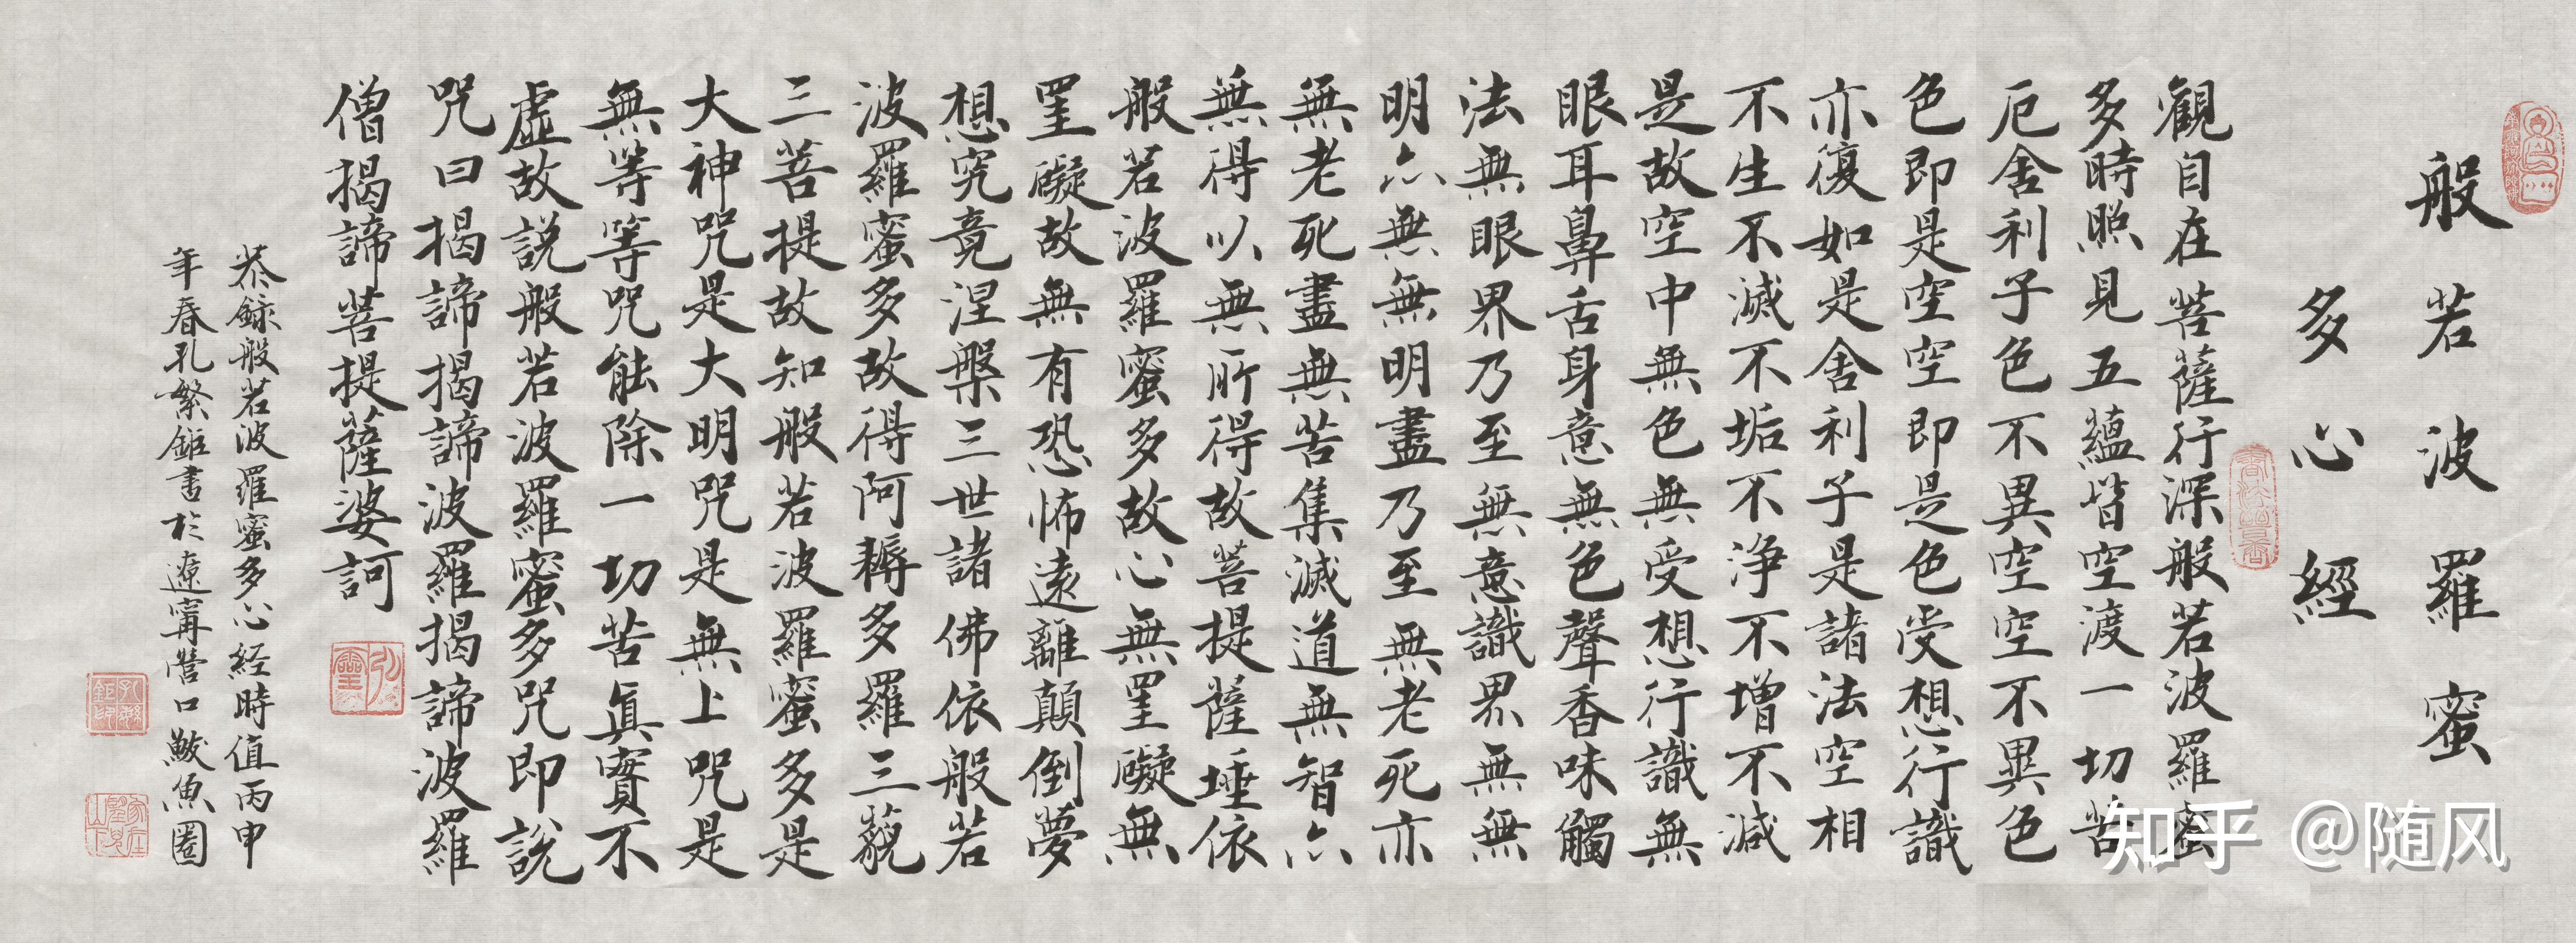 般若波羅蜜
多心經
觀自在菩薩行深般若波羅蜜
多時照見五蘊皆空渡一切苦
厄舍利子色不異空空不異色
色即是空空即是色受想行識
亦復如是舍利子是諸法空相
不生不滅不垢不浄不增不減
是故空中無色無受想行識無
眼耳鼻舌身意無色聲香味觸
法無眼界乃至無意識界無無
明亦無無明盡乃至無老死亦
無老死盡無苦集滅道無智亦
無得以無所得故菩提薩埵依
般若波羅蜜多故心無罣礙無
罣礙故無有恐怖遠離顛倒夢
想究竟涅槃三世諸佛依般若
波羅蜜多故得阿耨多羅三藐
三菩提故知般若波羅蜜多是
大神咒是大明咒是無上咒是
無等等咒能除一切苦真實不
虛故説般若波羅蜜多咒即説
咒曰揭諦揭諦波羅揭諦波羅
僧揭諦菩提薩婆訶
恭錄般若波羅蜜多心経時值丙申
年春孔繁鉅書於遼寧營口鮁魚圈
知乎 @随风